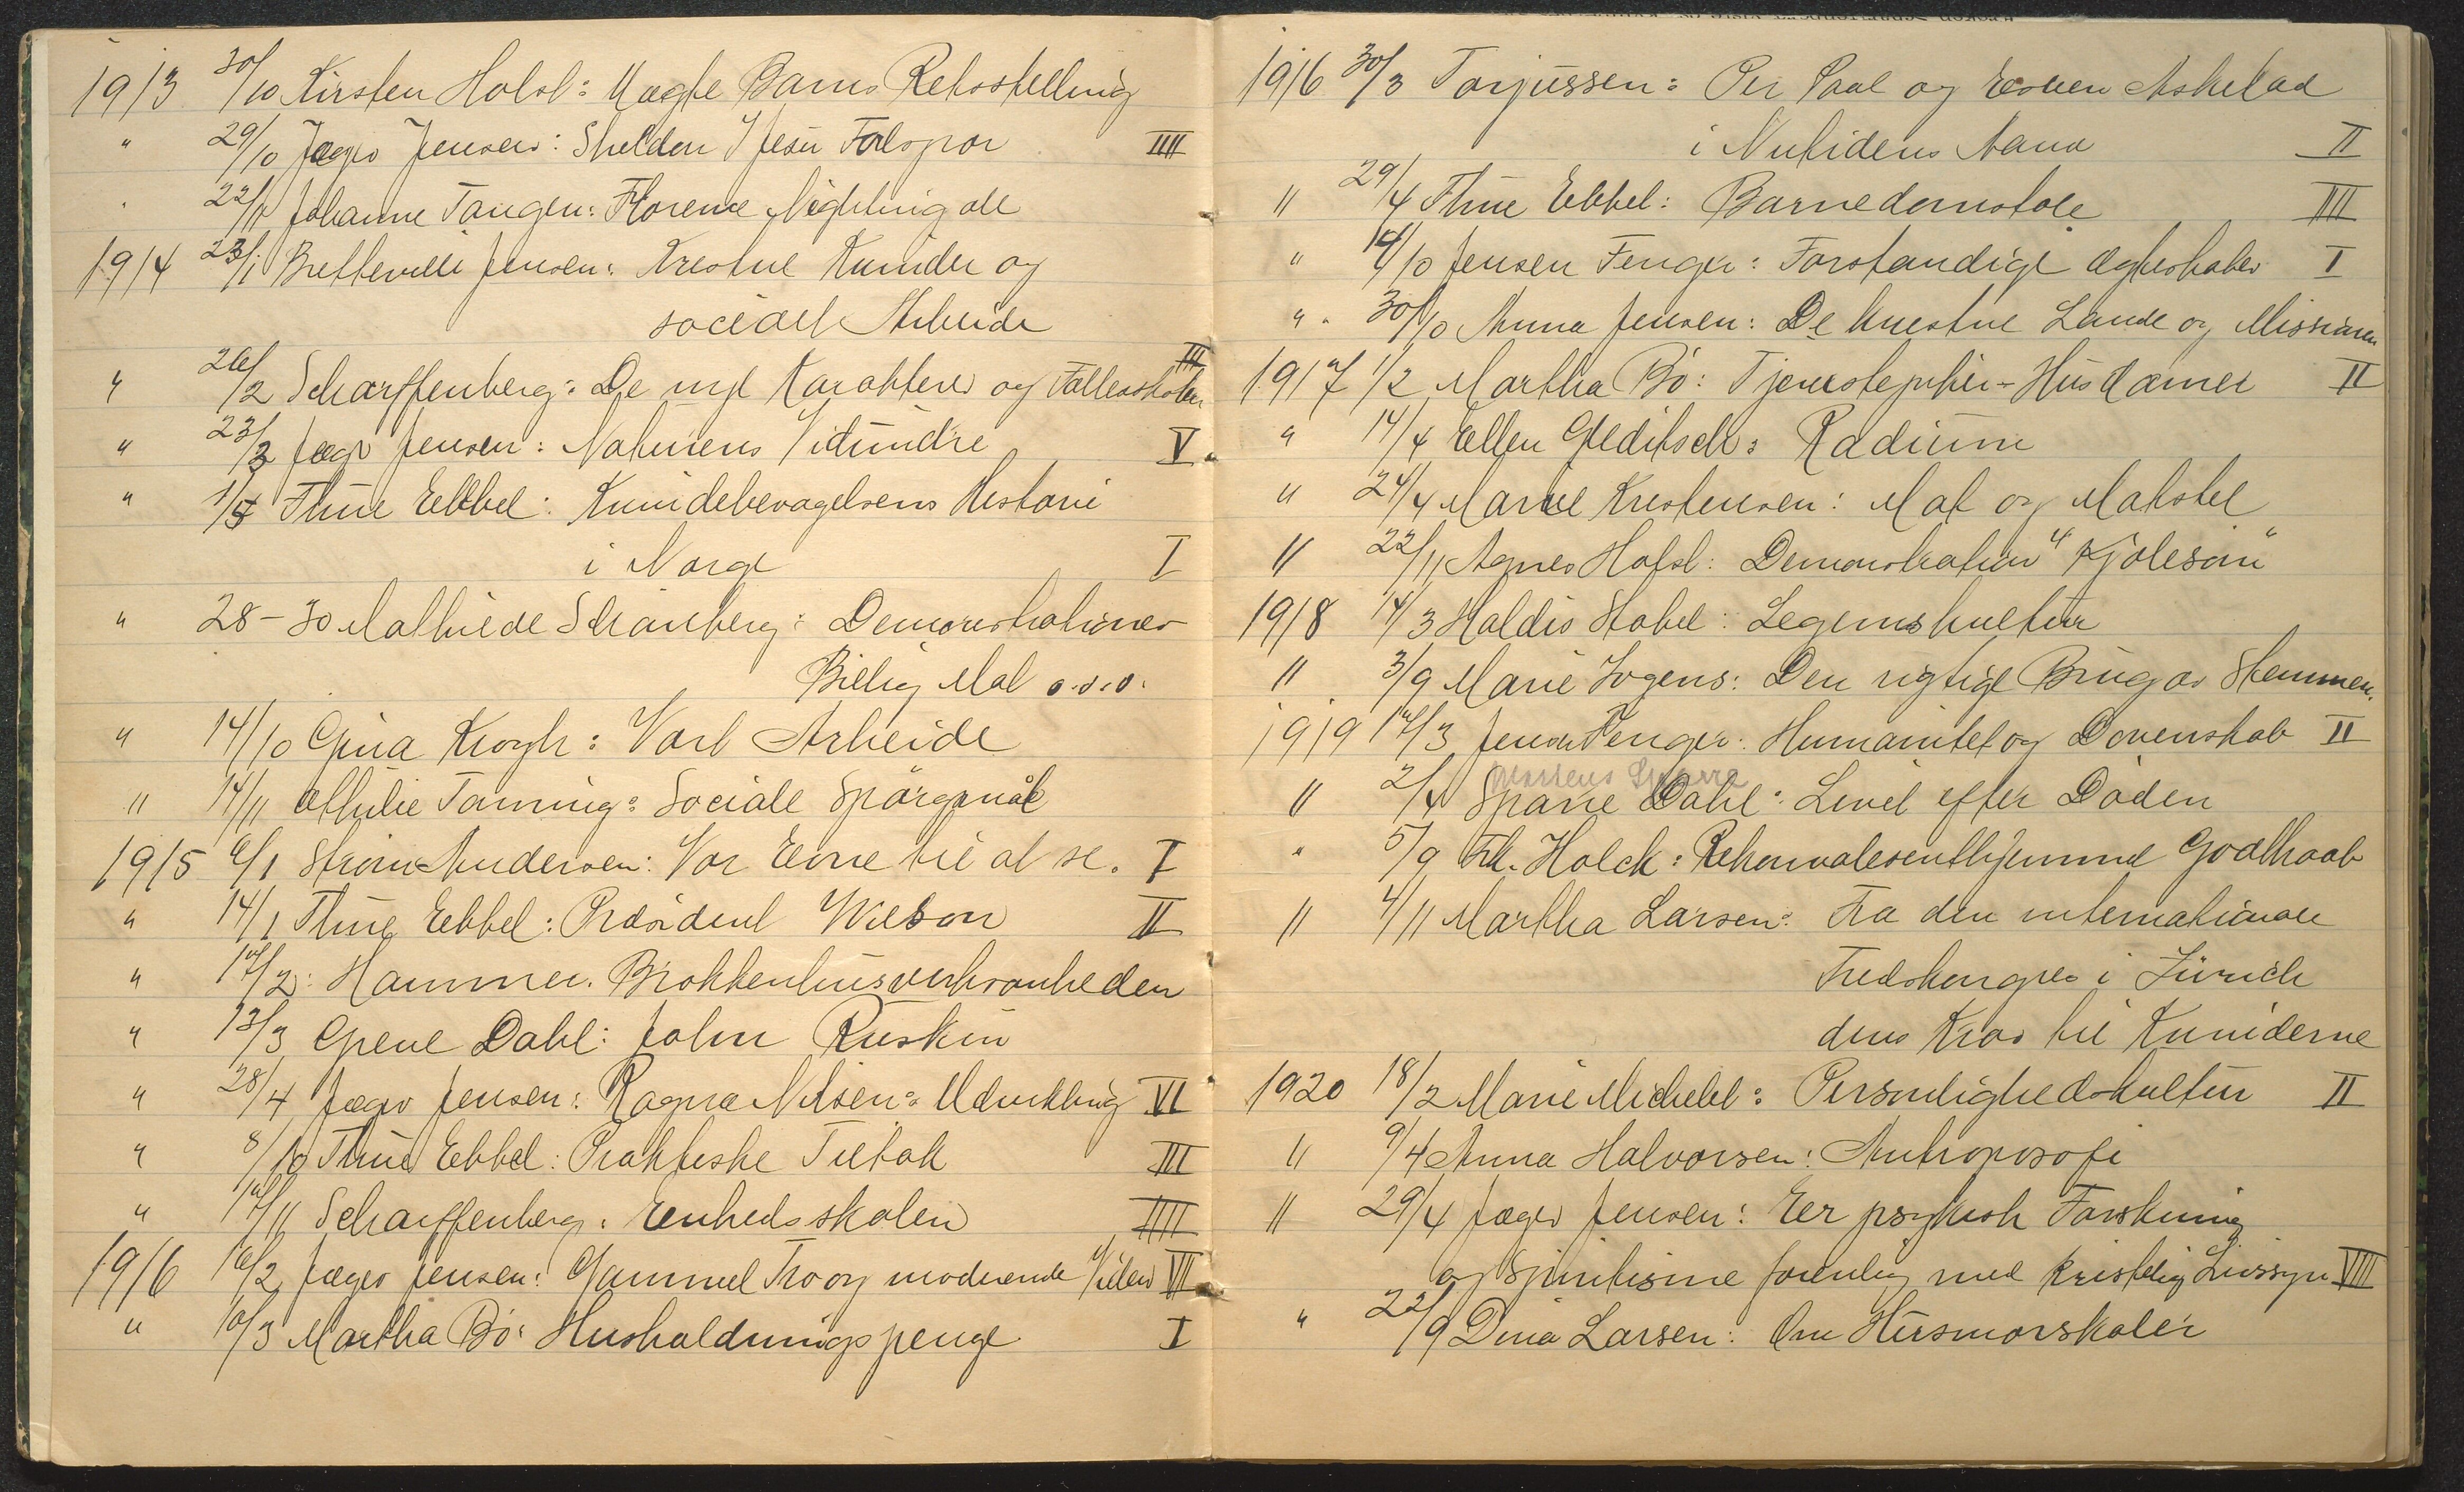 1913 30/10 Kirsten Holst: Uægte Barns Retsstelling
" 29/10 Jæger Jensen: Sheldon I Jesu Fodspor IIII
" 22/11 Johanne Tangen: Florence Nightingale
1914 23/1 Bretteville Jensen: Kristne Kvinder og
socialt Arbeide
" 26/2 Scharffenberg: De nye Karakterer og Fællesskolen III
" 23/3 Jæger Jensen: Naturens Vidundre V
" 1/5 Thue Ebbel: Kvindebevægelsens Historie
i Norge I
" 28-30 Mathilde Schønberg: Demonstrationer
Billig Mat o.s.v.
" 14/10 Gina Krogh: Vort Arbeide
" 14/11 Thilie Tønning: Sociale Spørgsmål
1915 6/1 Strøm Andersen: Vor Evne til at se. I
" 14/1 Thue Ebbel: Præsident Wilson II
" 17/2: Hammer. Brokkenhusvirksomheden
" 13/3 Grene Dahl: John Ruskin
" 28/4 Jæger Jensen: Ragna Nilsen: Udvikling VI
" 8/10 Thue Ebbel: Praktiske Tiltak III
" 17/11 Scharffenberg: Enhedsskolen IIII
1916 16/2 Jæger Jensen: Gammel Tro og moderne Viden VII
" 10/3 Martha Bø: Husholdningspenge I
1916 30/3 Torjussen: Per Paal og Espen Askelad
i Nutidens Aand II
" 29/4 Thue Ebbel: Barnedomstole IIII
" 14/10 Jensen Fenger: Forstandige Ægteskaber I
" 30/10 Anna Jensen: De kristne Lande og Missionen
1917 1/2 Martha Bø: Tjenestepiker - Husdamer II
" 14/4 Ellen Gleditsch: Radium
" 24/4 Marie Kristensen: Mat og Matstel
" 22/11 Agnes Hofst: Demonstration "Kjolesøm"
1918 14/3 Haldis Stabel: Legemskultur
" 3/9 Marie Irgens: Den rigtige Brug av Stemmen.
1919 17/3 Jensen Fenger: Humanitet og Dovenskab II
" 2/4 Sparre Dahl: Livet efter Døden
" 5/9 Frk. Holck: Rekonvalesenthjemmet Godthaab
" 4/11 Martha Larsen: Fra den internationale
Fredskongres i Zürich
dens Krav til Kvinderne
1920 18/2 Marie Michelet: Personlighedskultur II
" 9/4 Anna Halvorsen: Antroposofi
" 29/4 Jæger Jensen: Er psykisk Forskning
og Spiritisme forenlig med kristelig Livssyn VIII
" 22/9 Dina Larsen: Om Husmorskoler